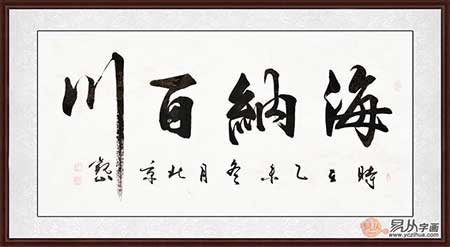 海納百川
時在乙未冬月北京
易从字画
www.yczihua.com